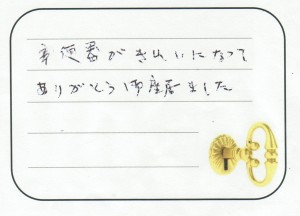 便器がきれいになって
ありがとう御座居ました